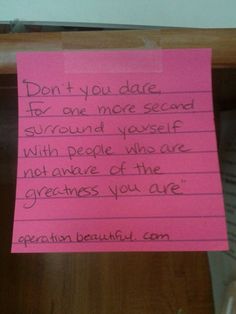 "Don't you dare,
for one more second
surround yourself
with people who are
not aware of the
greatness you are"
operation beautiful. com